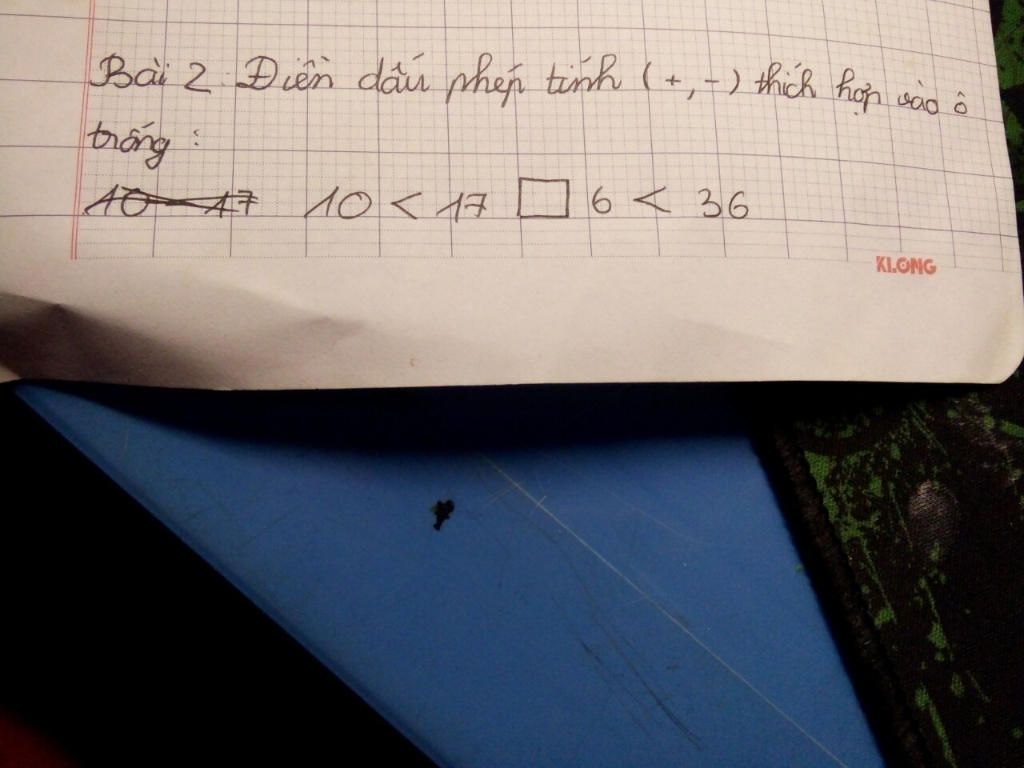 Bài 2. Điền dấu phép tính (+,-) thích hợp vào ô
trống :
10 < 17 □ 6 < 36
KLONG